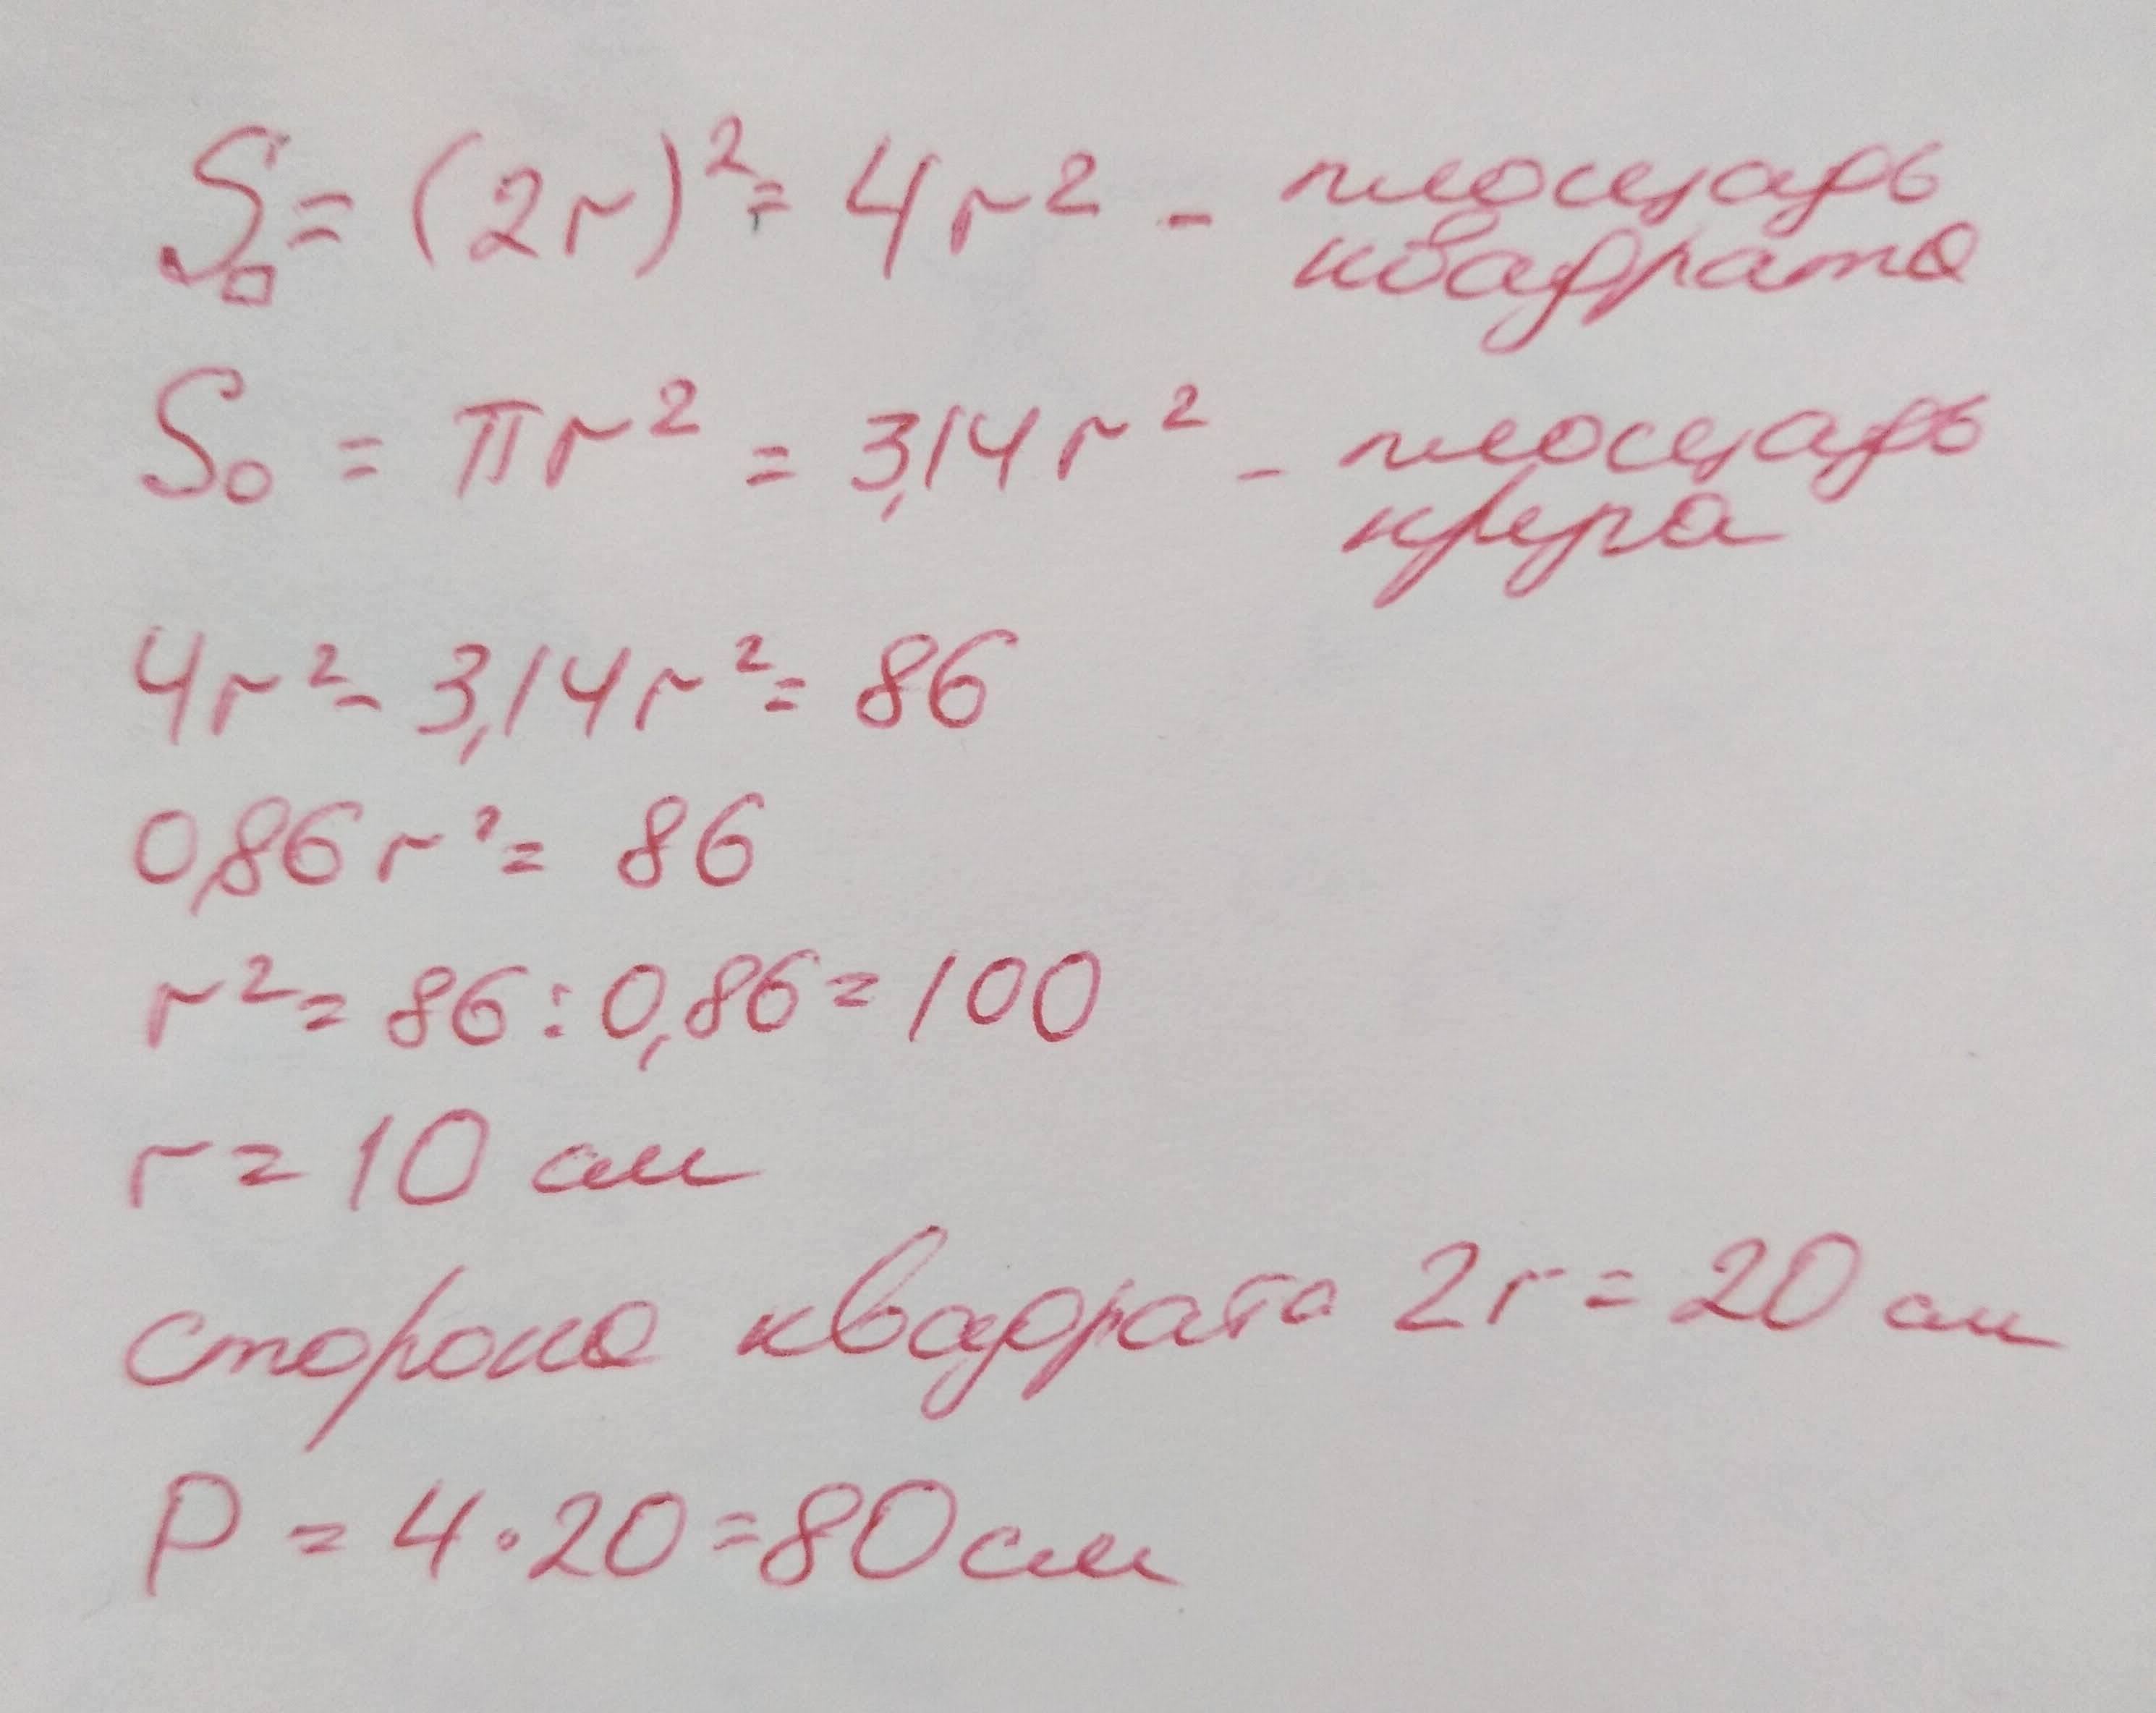 S□ = (2r)² = 4r² - площадь
квадрата
S○ = πr² = 3,14r² - площадь
круга
4r² - 3,14r² = 86
0,86r² = 86
r² = 86 : 0,86 = 100
r = 10 см
сторона квадрата 2r = 20 см
P = 4 · 20 = 80 см